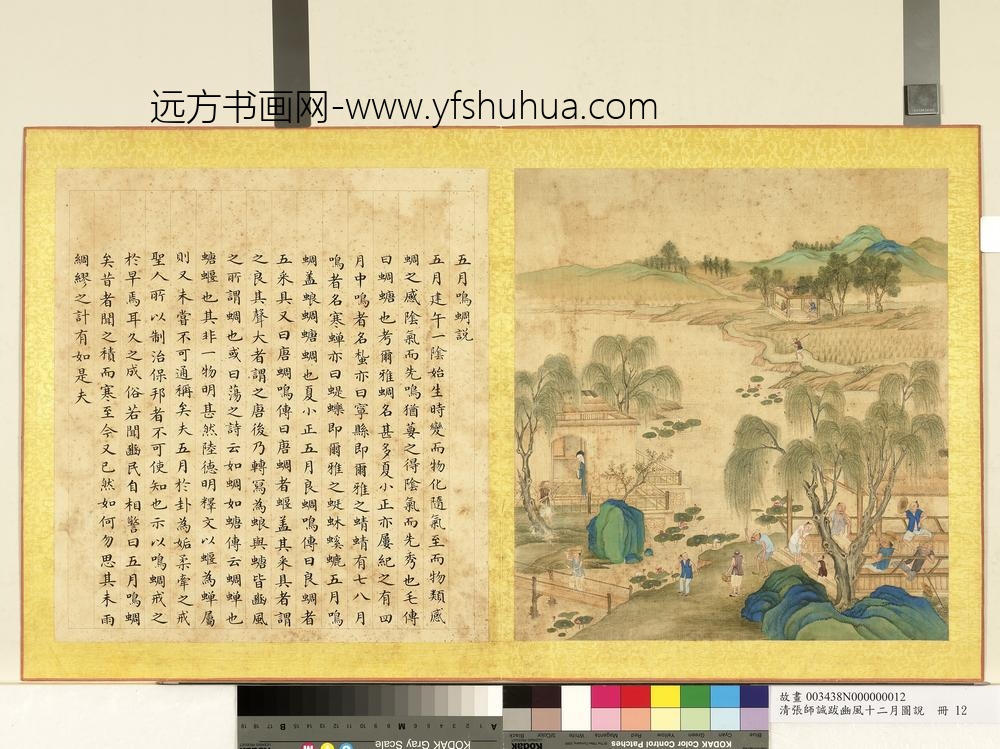 远方书画网-www.yfshuhua.com
五月鳴蜩説
五月建午一陰始生時變而物化隨氣至而物類感
蜩之感陰氣而先鳴猶葽之得陰氣而先秀也毛傳
曰蜩螗也考爾雅蜩名甚多夏小正亦屢紀之有四
月中鳴者名蚻亦曰寧縣即爾雅之蜻蜻有七八月
鳴者名寒蟬亦曰蝭蠑即爾雅之蜓蚞螇螰五月鳴
蜩盖蜋蜩螗蜩也夏小正五月良蜩鳴傳曰良蜩者
五采具又曰唐蜩鳴傳曰唐蜩者蝘盖其采具者謂
之良其聲大者謂之唐後乃轉冩為蜋與螗皆豳風
之所謂蜩也或曰蕩之詩云如蜩如螗傳云蜩蟬也
螗蝘也其非一物明甚然陸德明釋文以蝘為蟬屬
則又未嘗不可通稱矣夫五月於卦為姤柔牽之戒
聖人所以制治保邦者不可使知也示以鳴蜩戒之
於早焉耳久之成俗若聞豳民自相警曰五月鳴蜩
矣昔者聞之積而寒至今又已然如何勿思其未雨
綢繆之計有如是夫
故畫 003438N000000012
清張師誠跋豳風十二月圖說 冊 12
KODAK Gray Scale
KODAK Color Control Patches
Blue
Cyan
Green
Yellow
Red
Magenta
White
3/Color
Black